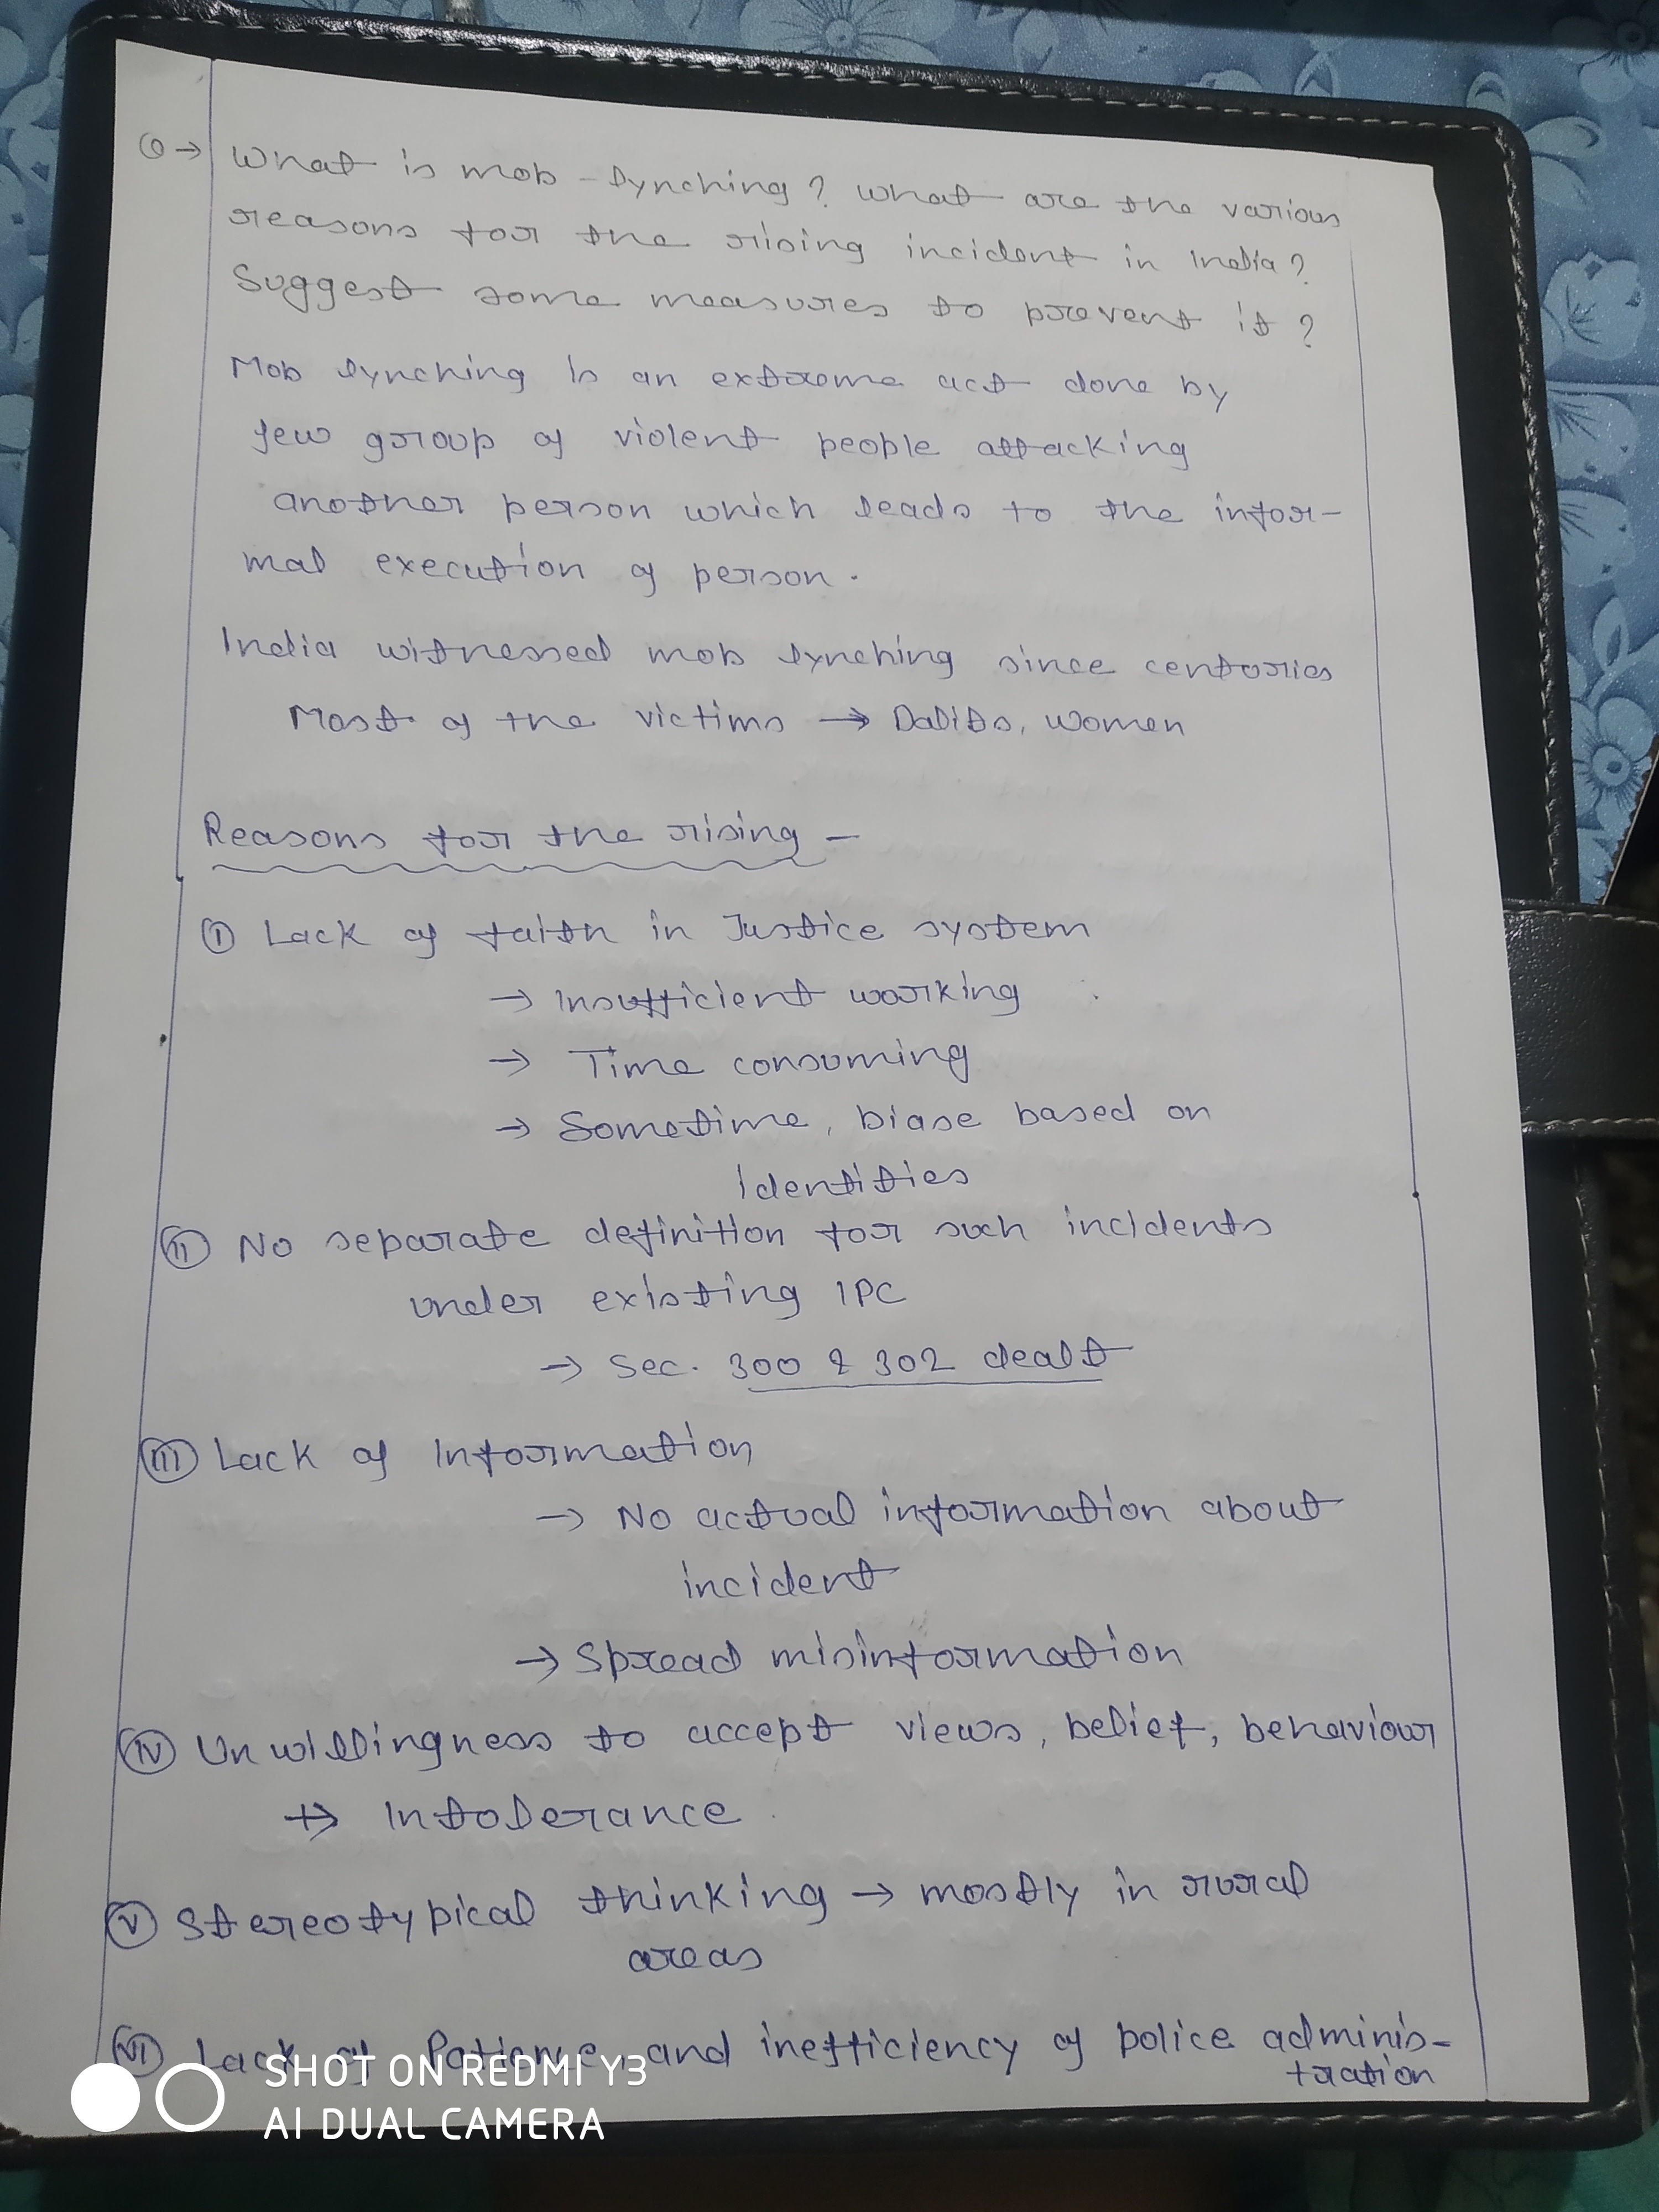 Q→ What is mob-lynching? what are the various
reasons for the rising incident in India?
Suggest some measures to prevent it?
Mob lynching is an extreme act done by
few group of violent people attacking
another person which leads to the infor-
mal execution of person.
India witnessed mob lynching since centuries
Most of the victims → Dalits, women
Reasons for the rising -
(I) Lack of faith in Justice system
→ Insufficient working
→ Time consuming
→ Sometime, biase based on
Identities
(II) No separate definition for such incidents
under existing IPC
→ Sec. 300 & 302 dealt
(III) Lack of Information
→ No actual information about
incident
→ Spread misinformation
(IV) Unwillingness to accept views, belief, behaviour
→ Intolerance
(V) Stereotypical thinking → mostly in rural
areas
(VI) Lack of Patience, and inefficiency of police adminis-
tration
SHOT ON REDMI Y3
AI DUAL CAMERA